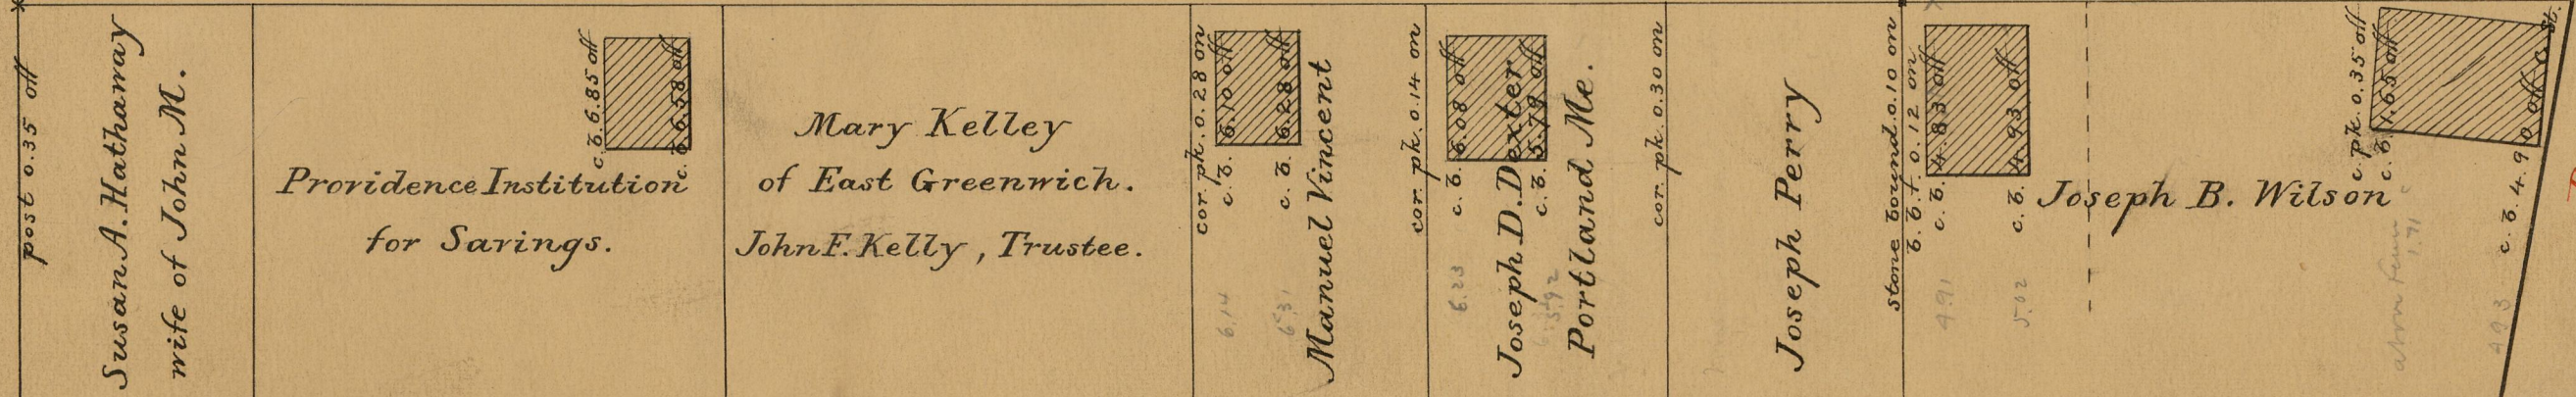 post 0.35 off
Susan A. Hathaway
wife of John M.
Providence Institution
for Savings.
c.b. 6.85 off
c.b. 6.58 off
Mary Kelley
of East Greenwich.
John F. Kelly, Trustee.
cor. pk. 0.28 on
c.b. 6.10 off
c.b. 6.28 off
6.14
6.31
Manuel Vincent
cor. pk. 0.14 on
c.b. 6.08 off
c.b. 5.79 off
6.23
5.92
Joseph D. Dexter
Portland Me.
cor. pk. 0.30 on
Joseph Perry
stone bound 0.10 on
b.b.f. 0.12 on
c.b. 4.83 off
c.b. 4.93 off
4.91
5.02
Joseph B. Wilson
c. pk. 0.35 off
c.b. 1.65 off
1.71
c.b. 4.90 off C. St.
4.93